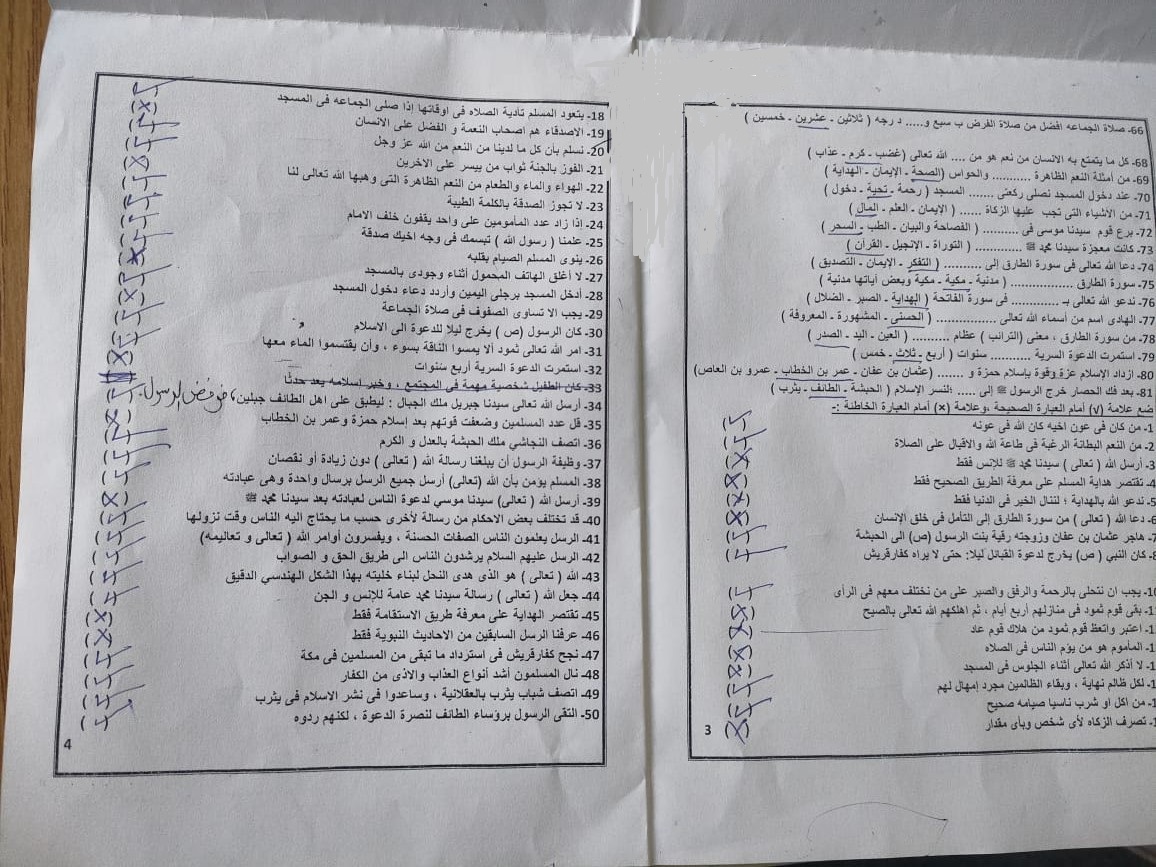 66- صلاة الجماعه افضل من صلاة الفرض ب سبع و..... د رجه ( ثلاثين - عشرين - خمسين )
68- كل ما يتمتع به الانسان من نعم هو من .... الله تعالى (غضب - كرم - عذاب )
69- من أمثلة النعم الظاهرة .......... والحواس (الصحة - الإيمان - الهداية )
70- عند دخول المسجد نصلى ركعتى ....... المسجد ( رحمة - تحية - دخول )
71- من الاشياء التى تجب عليها الزكاة ...... ( الإيمان - العلم - المال )
72- برع قوم سيدنا موسى فى .......... ( الفصاحة والبيان - الطب - السحر )
73- كانت معجزة سيدنا محمد ﷺ ............. ( التوراة - الإنجيل - القرآن )
74- دعا الله تعالى فى سورة الطارق إلى .......... ( التفكر - الإيمان - التصديق )
75- سورة الطارق ................ ( مدنية - مكية - مكية وبعض آياتها مدنية )
76- ندعو الله تعالى بـ ............ فى سورة الفاتحة ( الهداية - الصبر - الضلال )
77- الهادى اسم من أسماء الله تعالى ............... ( الحسنى - المشهورة - المعروفة )
78- من سورة الطارق ، معنى (الترائب ) عظام .......... ( العين - اليد - الصدر )
79- استمرت الدعوة السرية ........... سنوات ( أربع - ثلاث - خمس )
80- ازداد الإسلام عزة وقوة بإسلام حمزة و ....... (عثمان بن عفان - عمر بن الخطاب - عمرو بن العاص)
81- بعد فك الحصار خرج الرسول ﷺ إلى ..... النسر الإسلام ( الحبشة - الطائف - يثرب )
ضع علامة (√) أمام العبارة الصحيحة ،وعلامة (×) أمام العبارة الخاطئة :-
1- من كان فى عون اخيه كان الله فى عونه
2- من النعم البطانة الرغبة فى طاعة الله والاقبال على الصلاة
3- أرسل الله ( تعالى ) سيدنا محمد ﷺ للإنس فقط
4- تقتصر هداية المسلم على معرفة الطريق الصحيح فقط
5- ندعو الله بالهداية ؛ لننال الخير فى الدنيا فقط
6- دعا الله ( تعالى ) من سورة الطارق إلى التأمل فى خلق الإنسان
7- هاجر عثمان بن عفان وزوجته رقية بنت الرسول (ص) الى الحبشة
8- كان النبي ( ص) يخرج لدعوة القبائل ليلا: حتى لا يراه كفارقريش
10- يجب ان نتحلى بالرحمة والرفق والصبر على من نختلف معهم فى الرأى
بقى قوم ثمود فى منازلهم أربع أيام ، ثم اهلكهم الله تعالى بالصيح
اعتبر واتعظ قوم ثمود من هلاك قوم عاد
المأموم هو من يؤم الناس فى الصلاه
لا أذكر الله تعالى أثناء الجلوس فى المسجد
لكل ظالم نهاية ، وبقاء الظالمين مجرد إمهال لهم
من اكل او شرب ناسيا صيامه صحيح
تصرف الزكاه لأى شخص وبأى مقدار
3
18- يتعود المسلم تأدية الصلاه فى اوقاتها إذا صلى الجماعه فى المسجد
19- الاصدقاء هم اصحاب النعمة و الفضل على الانسان
20- نسلم بأن كل ما لدينا من النعم من الله عز وجل
21- الفوز بالجنة ثواب من ييسر على الاخرين
22- الهواء والماء والطعام من النعم الظاهرة التى وهبها الله تعالى لنا
23- لا تجوز الصدقة بالكلمة الطيبة
24- إذا زاد عدد المأمومين على واحد يقفون خلف الامام
25- علمنا ( رسول الله ) تبسمك فى وجه اخيك صدقة
26- ينوى المسلم الصيام بقلبه
27- لا أغلق الهاتف المحمول أثناء وجودى بالمسجد
28- أدخل المسجد برجلى اليمين وأردد دعاء دخول المسجد
29- يجب الا تساوى الصفوف فى صلاة الجماعة
30- كان الرسول (ص ) يخرج ليلا للدعوة الى الاسلام
31- امر الله تعالى ثمود ألا يمسوا الناقة بسوء ، وأن يقتسموا الماء معها
32- استمرت الدعوة السرية أربع سنوات
33- كان الطفيل شخصية مهمة فى المجتمع ، وخبر اسلامه يعد حدثا
34- أرسل الله تعالى سيدنا جبريل ملك الجبال : ليطبق على اهل الطائف جبلين ، فرفض الرسول
35- قل عدد المسلمين وضعفت قوتهم بعد إسلام حمزة وعمر بن الخطاب
36- اتصف النجاشي ملك الحبشة بالعدل و الكرم
37- وظيفة الرسول أن يبلغنا رسالة الله ( تعالى ) دون زيادة أو نقصان
38- المسلم يؤمن بأن الله (تعالى) أرسل جميع الرسل برسال واحدة وهى عبادته
39- أرسل الله ( تعالى) سيدنا موسي لدعوة الناس لعبادته بعد سيدنا محمد ﷺ
40- قد تختلف بعض الاحكام من رسالة لأخرى حسب ما يحتاج اليه الناس وقت نزولها
41- الرسل يعلمون الناس الصفات الحسنة ، ويفسرون أوامر الله ( تعالى و تعاليمه)
42- الرسل عليهم السلام يرشدون الناس الى طريق الحق و الصواب
43- الله ( تعالى ) هو الذى هدى النحل لبناء خليته بهذا الشكل الهندسي الدقيق
44- جعل الله ( تعالى ) رسالة سيدنا محمد عامة للإنس و الجن
45- تقتصر الهداية على معرفة طريق الاستقامة فقط
46- عرفنا الرسل السابقين من الاحاديث النبوية فقط
47- نجح كفارقريش فى استرداد ما تبقى من المسلمين فى مكة
48- نال المسلمون أشد أنواع العذاب والاذى من الكفار
49- اتصف شباب يثرب بالعقلانية ، وساعدوا فى نشر الاسلام فى يثرب
50- التقى الرسول برؤساء الطائف لنصرة الدعوة ، لكنهم ردوه
4